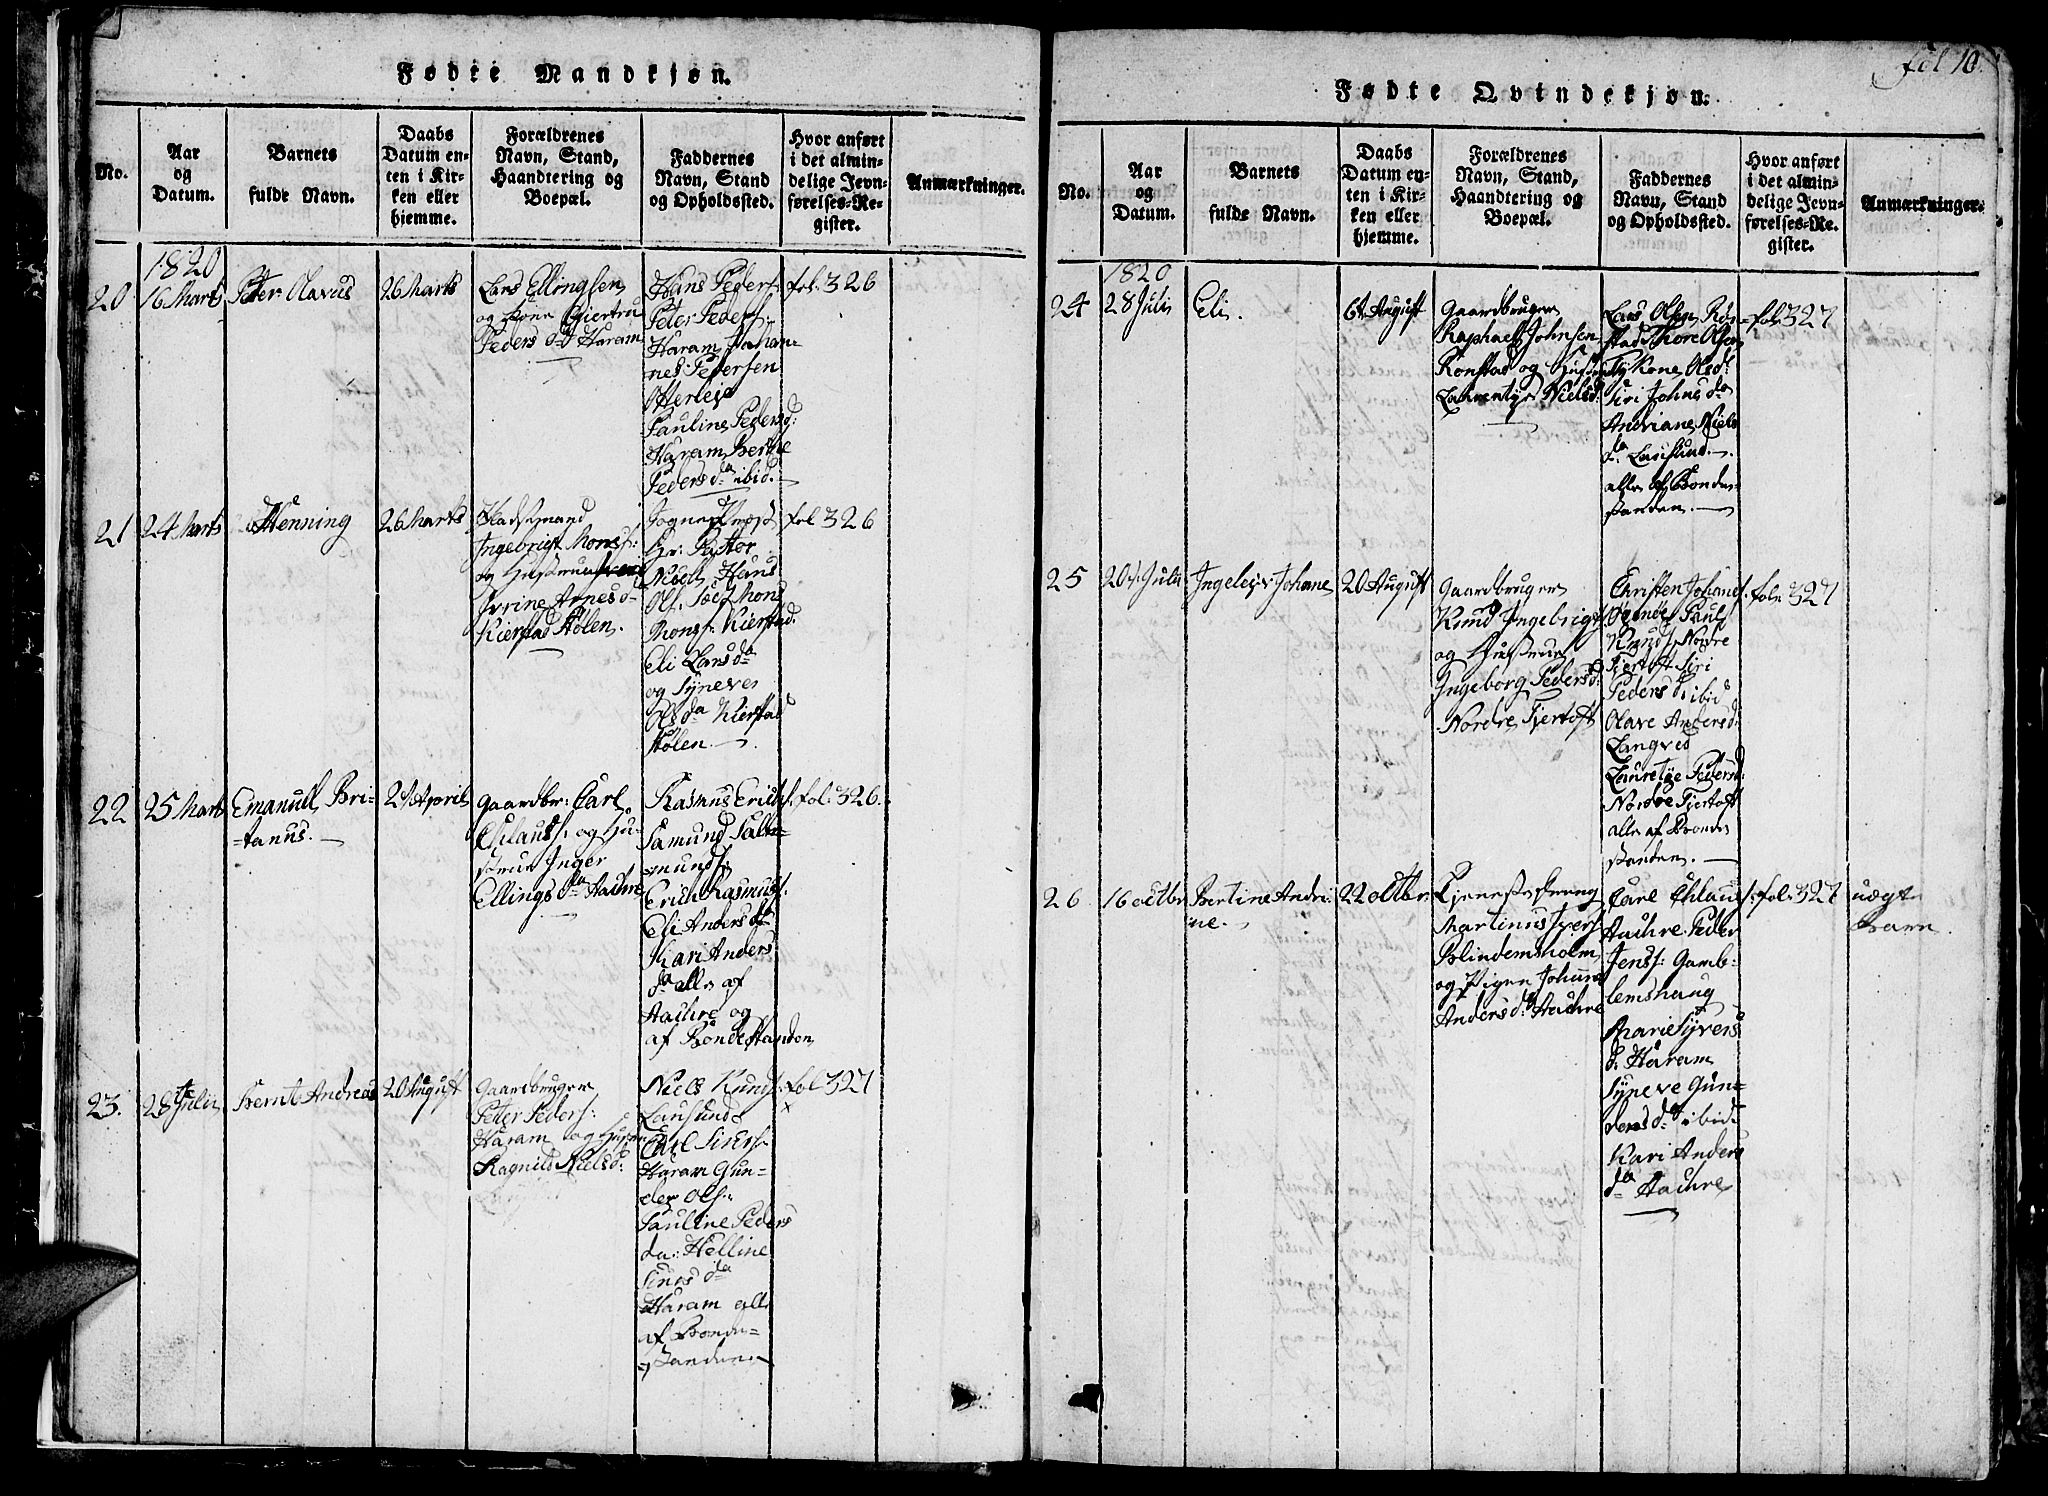 Fødte Mandkjøn.
No.
Aar
og
Datum.
Barnets
fulde Navn.
Daabs
Datum en-
ten i Kir-
ken eller
hjemme.
Forældrenes
Navn, Stand,
Haandtering og
Boepæl.
Faddernes
Navn, Stand
og Opholdssted.
Hvor anført
i det almin-
delige Jevn-
førelses-Re-
gister.
Anmærkninger.
1820
20
16 Marts
Peter Olavus
26 Marts
Lars Ellingsen
og Kone Giertru
Peders D Haram
Hans Peders:
Peter Peders:
Haram Johan-
nes Pedersen
Otterleje
Pauline Pedersd:
Haram Berthe
Pedersda ibid.
fol: 326
21
24 Marts
Henning
26 Marts
Pladsmand
Ingebrigt Mons:
og Hustrue
Arnesd
Kierstad Hølen.
Hr: Pastor
Hans
Ols. Mons
Mons: Kierstad:
Eli Larsda
og Syneve
Olsda Kierstad
Hølen.
fol 326
22
25 Marts
Emanuel Bri-
tanus.
2d April
Gaardbr: Carl
Ehlauss: og Hu-
strue Inger
Ellingsda Aachre
Rasmus Erichs:
Samund Salle-
munds:
Erich Rasmuss:
Eli Andersda
Kari Anders
da alle af
Aachre og
af Bondestanden
fol: 326.
23.
28de Julii
Bernt Andreas
20 August
Gaardbruger
Peter Peders:
Haram og Hustru
Ragnild Nielsd:
Niels Knuds:
Lausund
Carl Sivers:
Haram Gun-
der Ols:
Pauline Peders
da: Helline
Siversda
Haram alle
af Bonde-
standen
fol 327
x
fol 10.
Fødte Qvindekjøn.
No.
Aar
og
Datum.
Barnets
fulde Navn.
Daabs
Datum en-
ten i Kir-
ken eller
hjemme.
Forældrenes
Navn, Stand,
Haandtering og
Boepæl.
Faddernes
Navn, Stand
og Opholdssted.
Hvor anført
i det almin-
delige Jevn-
førelses-Re-
gister.
Anmærkninger.
1820
24
28 Julii
Eli.
6t August
Gaardbruger
Raphael Johnsen
Rønstad og Hustru
Laurentye Nielsd:
Lars Olsen Røn-
stad Thore Olsen
Olsd:
Siri Johnsda
Andriane Niels
da Lausund.
alle af Bonde-
standen.
fol 327
25
20de Julii
Ingeleiv Johane
20 August
Gaardbruger
Knud Ingebrigts
og Hustrue
Ingeborg Pedersd:
Nordre Fjertoft
Christen Johans:
Ognøe Paul
Knuds Nordre
Fjertoft Siri
Pedersd. ibid
Olave Andersd:
Langved
Lauretye Pedersd:
Nordre Fjertoft
alle af Bonde-
standen.
fol: 327
26
16 octbr
Bertine Andri-
ne.
22 octbr:
Tjenestedreng
Martinus Ivers:
Blindemsholm
og Pigen Johanne
Andersd: Aachre
Carl Ehlaus:
Aachre Peder
Jenss: Gamb-
lemshaug
Marie Syvers
d: Haram
Syneve Gun-
dersda ibid:
Kari Anders
da Aachre
fol: 327
uægte
Barn.